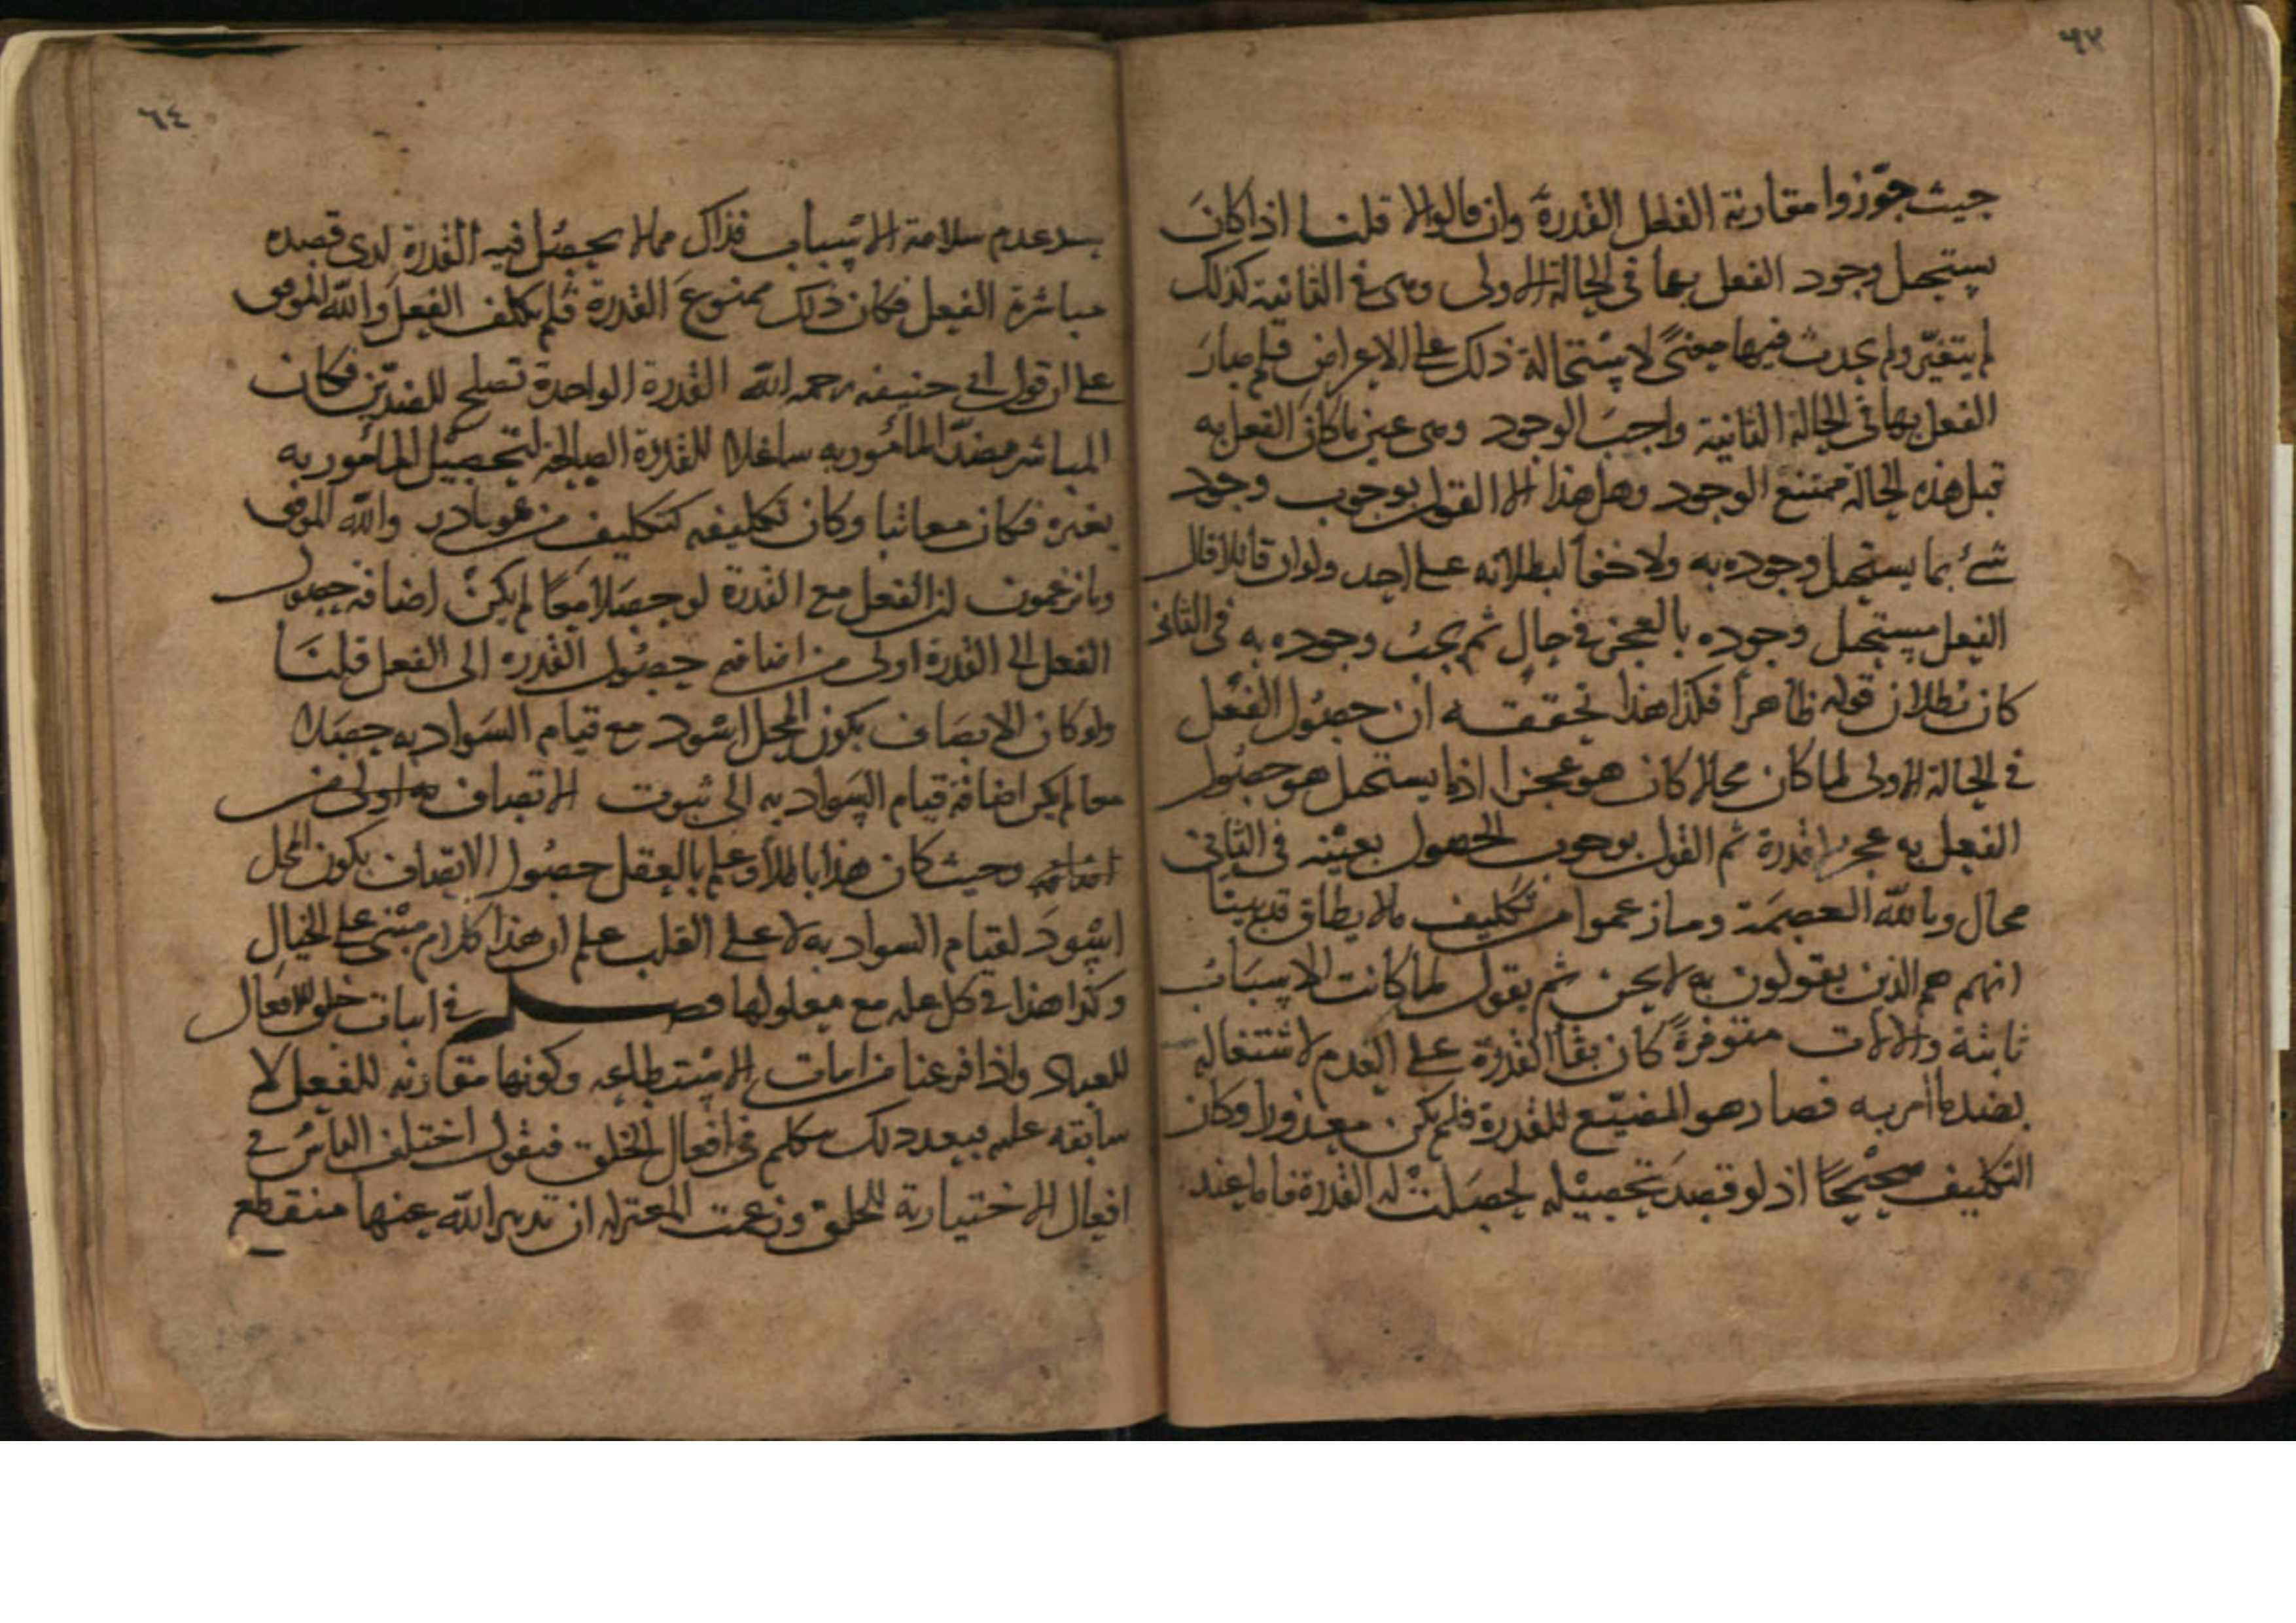 ٦٣
حيث جوّزوا مقارنة الفعل القدرة وان قالوا لا قلنا اذا كانَ
يستحيل وجود الفعل بها في الحالة الاولى وهى في الثانية كذلك
لم يتغيّر ولم يحدث فيها معنىً لاستحالة ذلك على الاعراض فلم صارَ
الفعل بها في الحالة الثانية واجبَ الوجود وهى عين ما كان الفعل به
قبل هذه الحالة ممتنع الوجود وهل هذا الا القول بوجوب وجود
شئ بما يستحيل وجوده به ولا خفأ لبطلانه على احد ولو ان قائلا قال
الفعل يستحيل وجوده بالعجز في حالٍ ثم يجب وجوده به في الثانى
كان بُطلان قوله ظاهراً فكذا هذا تحققه ان حصُول الفعْل
في الحالة الاولى لما كان محالا كان هو عجزا اذ ما يستحيل هو حصُول
الفعل به عجز لا قدرة ثم القول بوجوب الحصول بعينه في الثانى
محال وبالله العصمَة وما زعموا من تكليف ما لا يطاق قد بينا
انهم هم الذين يقولون به لا نحن ثم نقول لما كانت الاسبَابُ
ثابتة والالات متوفرةً كان بقأ القدرة على العدم لاشتغاله
بضد ما أمر به فصار هو المضيّع للقدرة فلم يكن معذورا وكان
التكليف صحيْحًا اذ لو قصدَ تحصيْله لحصَلتْ له القدرة فاما عند
٦٤
عدم سلامة الاسْباب فذاك مما لا يحصُل فيه القدرة لدى قصده
مباشرة الفعل فكان ذلك ممنوعَ القدرة فلم يكلف الفعل والله الموفق
على ان قول ابى حنيفه رحمه الله القدرة الواحدة تصلح للضدّين فكان
المباشر ضدّ المأمور به شاغلا للقدرة الصالحة لتحصيْل المأمور به
بغيره فكان معاتبا وكان تكليفه كتكليف من هو قادر والله الموفق
وما يزعمون ان الفعل مع القدرة لو حصَلا معًا لم يكنْ اضافة حصول
الفعل الى القدرة اولى من اضافه حصُول القدره الى الفعل قلنَا
ولو كان الاتصَاف بكون المحل اسْود مع قيام السَواد به حصَلا
معا لم يكن اضافة قيام السَواد به الى ثبوت الاتصاف به اولى من
اضافته وحيث كان هذا باطلا وعلم بالعقل حصُول الاتصَاف بكون المحل
اسْودَ لقيام السواد به لا على القلب علم ان هذا كلام مبْنى على الخيال
وكذا هذا في كل عله مع معلولها فصل في اثبات خلق افعال
للعباد واذا فرغنا من اثبات الاسْتطاعه وكونها مقارنه للفعل لا
سابقه عليه فبعد ذلك نتكلم في افعال الخلق فنقول اختلف الناسُ في
افعال الاختيارية للخلق وزعمت المعتزله ان تدبير الله عنها منقطع